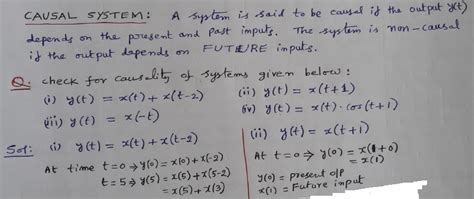 CAUSAL SYSTEM: A system is said to be causal if the output y(t)
depends on the present and past inputs. The system is non-causal
if the output depends on FUTURE inputs.
Q. check for causality of systems given below:
(i) y(t) = x(t) + x(t-2) (ii) y(t) = x(t+1)
(iii) y(t) = x(-t) (iv) y(t) = x(t) . cos(t+1)
Sol: (i) y(t) = x(t) + x(t-2) (ii) y(t) = x(t+1)
At time t=0 ⇒ y(0) = x(0) + x(-2) At t=0 ⇒ y(0) = x(1+0)
t=5 ⇒ y(5) = x(5) + x(5-2) = x(1)
= x(5) + x(3) y(0) = present o/p
x(1) = Future input